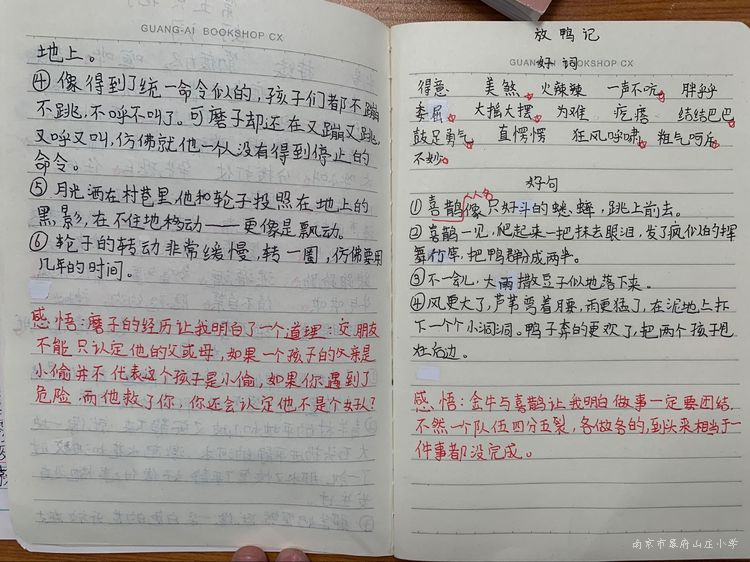 GUANG-AI BOOKSHOP CX
地上。
④像得到了统一命令似的，孩子们者都不蹦
不跳，不呼不叫了。可磨子却还在又蹦又跳，
又呼又叫，仿佛就他一个人没有得到停止的
命令。
⑤月光洒在村芭里，他和轮子投照在地上的
黑影，在不住地移动——更像是飘动。
⑥轮子的转动非常缓慢，转一圈，仿佛要用
几年的时间。
感悟：磨子的经历让我明白了一个道理：交朋友
不能只认定他的父或母，如果一个孩子的父亲是
小偷并不代表这个孩子是小偷，如果你遇到了
危险，而他救了你，你还会认定他不是个好人？
放鸭记
GUANG-AI BOOKSHOP CX
好词
得意 美煞 火辣辣 一声不吭 胖乎乎
委屈 大摇大摆 为难 疙瘩 结结巴巴
鼓足勇气 直愣愣 狂风呼啸 粗气呵斥
不妙
好句
人名
①喜鹊像只好斗的蟋蟀，跳上前去。
②喜鹊一见，爬起来一把抹去眼泪，发了疯似的挥
舞竹竿，把鸭群分成两半。
③不一会儿，大雨撒豆子似地落下来。
④风更大了，芦苇弯着腰，雨更猛了，在泥地上打
下一个个小洞洞。鸭子奔的更欢了，把两个孩子甩
在后边。
感悟：金牛与喜鹊让我明白做事一定要团结，
不然一个队伍四分五裂，各做各的，到头来相当于一
件事都没完成。
南京市幕府山庄小学